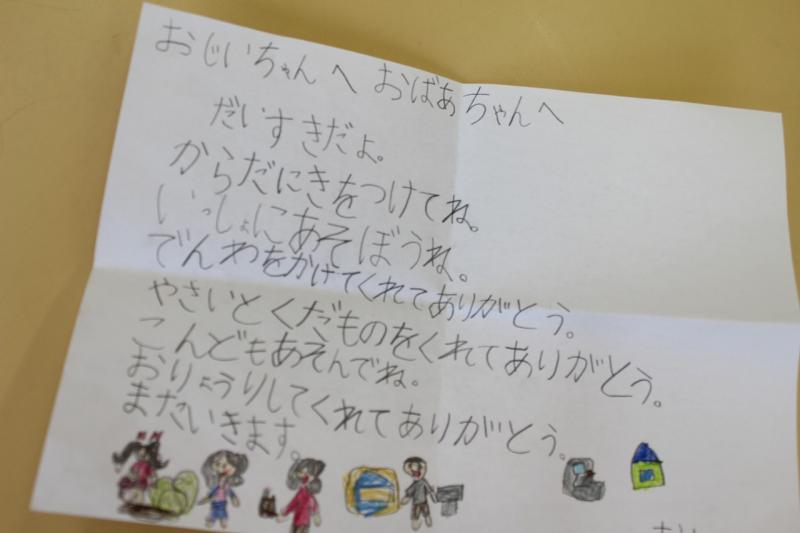 おじいちゃんへ おばあちゃんへ
だいすきだよ。
からだにきをつけてね。
いっしょにあそぼうね。
でんわをかけてくれてありがとう。
やさいとくだものをくれてありがとう。
こんどもあそんでね。
おりょうりしてくれてありがとう。
まだいきます。